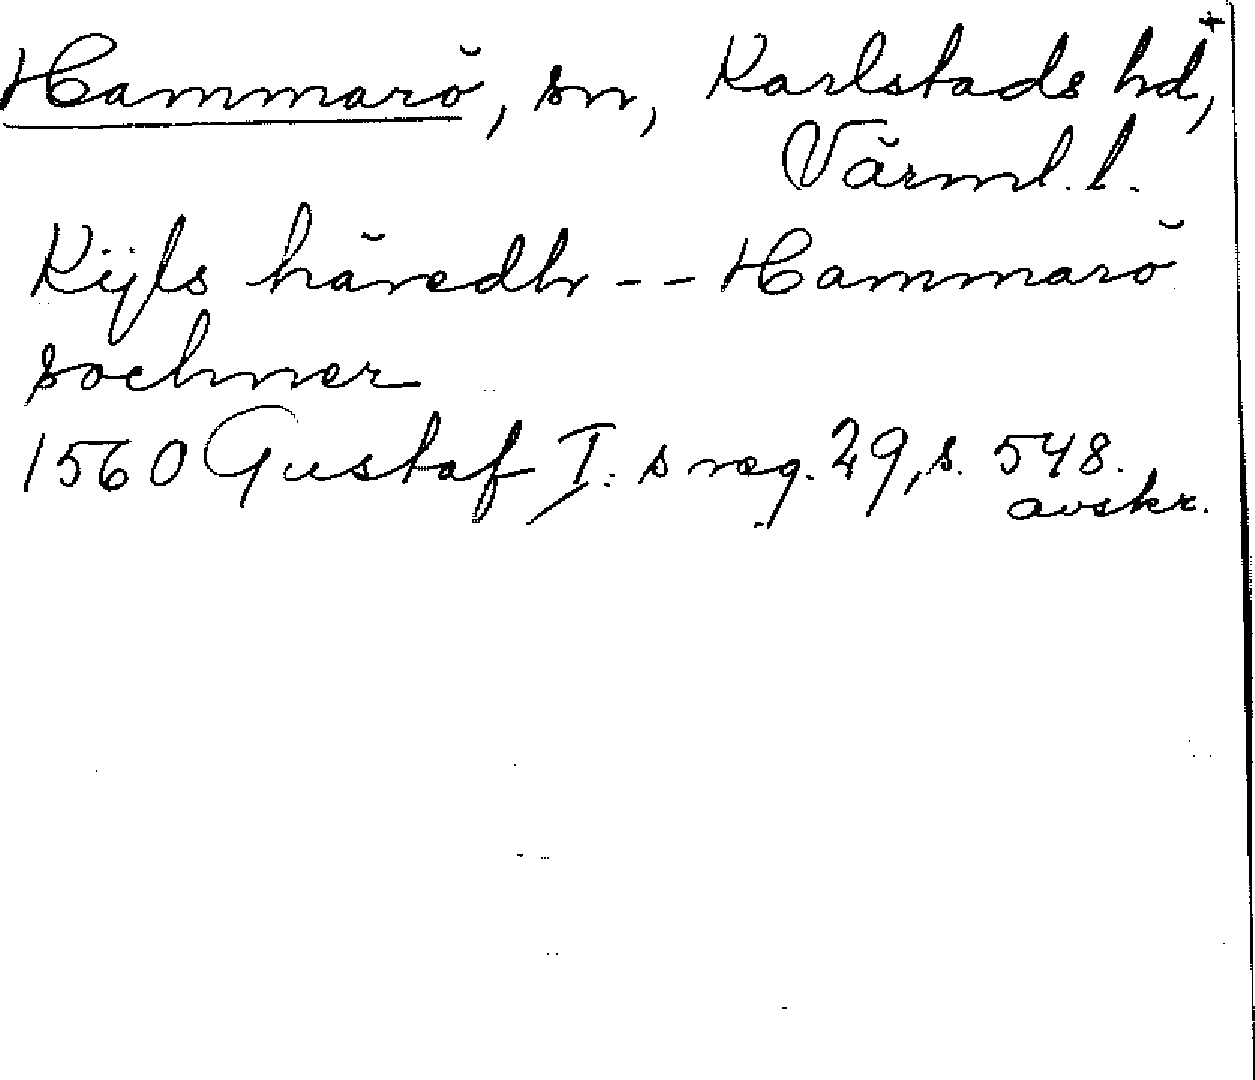 Hammarö, sn, Karlstads hd,+
Värml. l.
Kijls häredh -- Hammarö
sochner
1560 Gustaf I: s reg. 29, s. 548.
avskr.